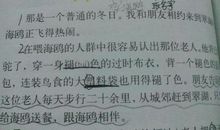 1那是一个普通的冬日。我和朋友相约来到翠
海鸥正飞得热闹。
2在喂海鸥的人群中很容易认出那位老人。他
驼了，穿一身褪色的过时布衣，背一个褪色的
包，连装鸟食的大塑料袋也用得褪了色。朋友告
这位老人每天步行二十余里，从城郊赶到翠湖，只
给海鸥送餐，跟海鸥相伴。